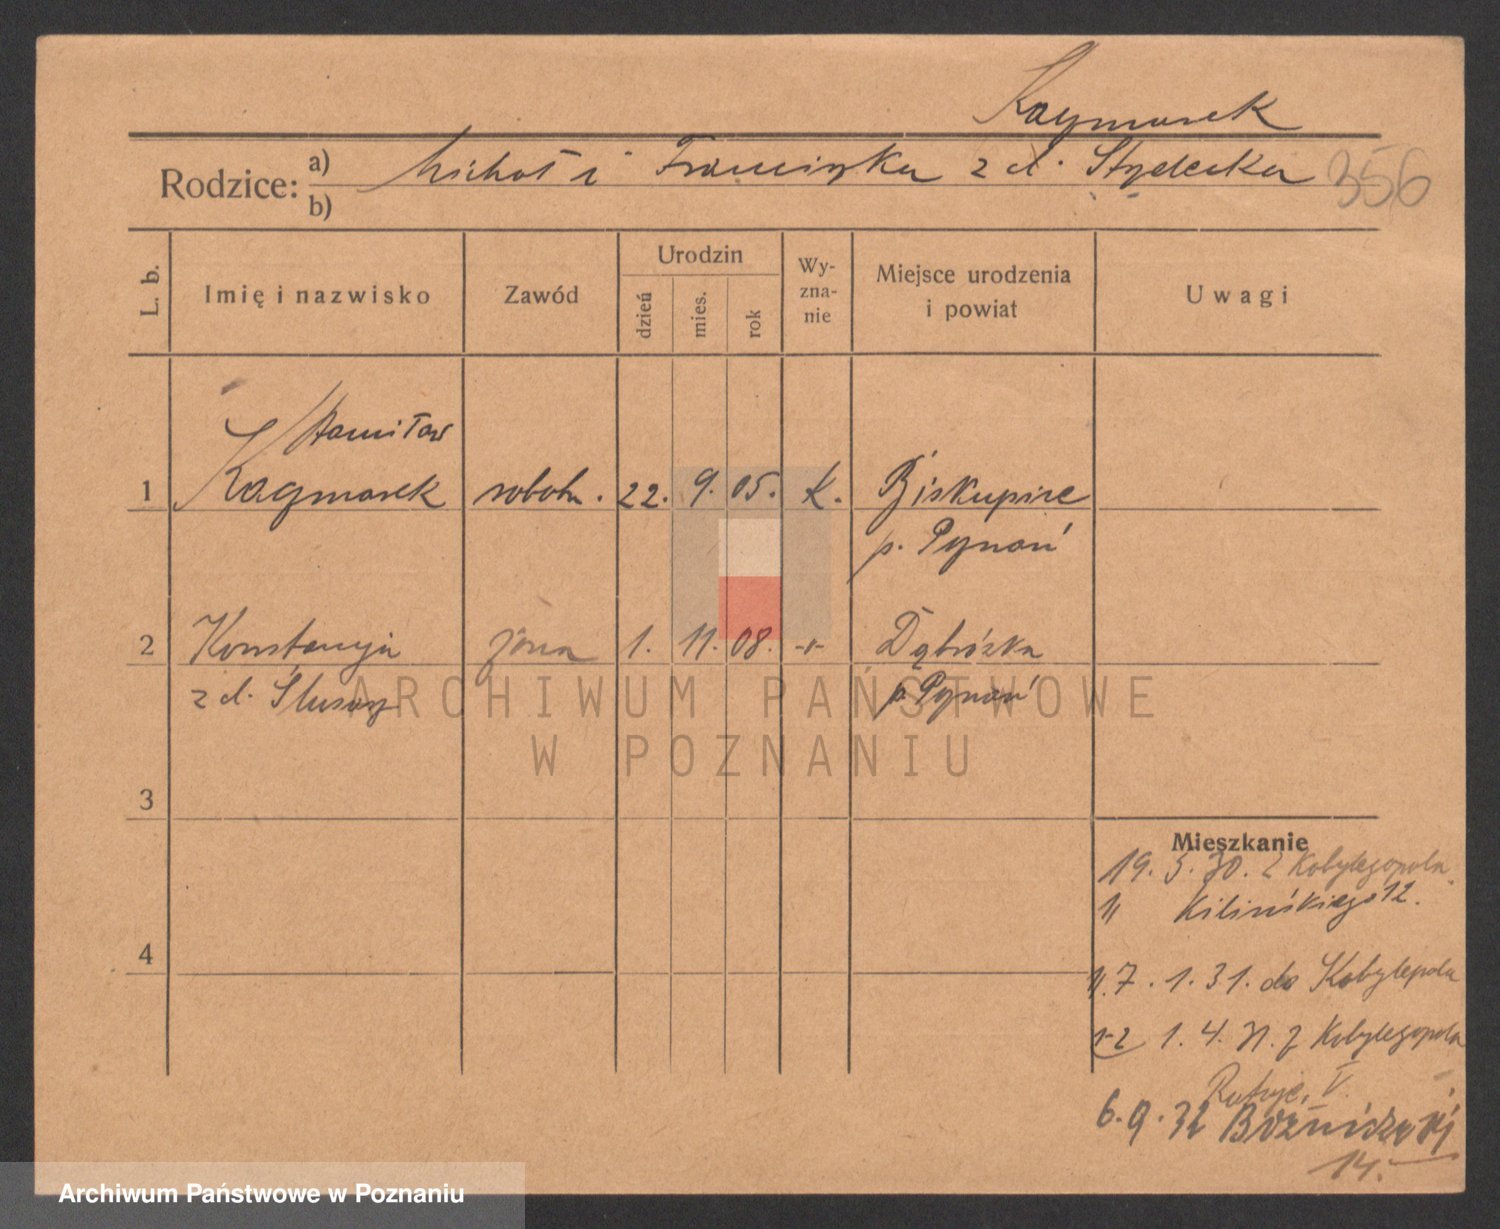 Kaczmarek
Rodzice: a) Michał i Franciszka z d. Szydecka 356
b)
L. b. Imię i nazwisko Zawód Urodzin dzień mies. rok Wy-zna-nie Miejsce urodzenia i powiat Uwagi
Stanisław
1 Kaczmarek robotn. 22. 9. 05. k. Biskupice
p. Poznań
2 Konstancja żona 1. 11. 08. -"- Dąbrówka
z d. Ślusarz p. Poznań
ARCHIWUM PAŃSTWOWE
W POZNANIU
3
Mieszkanie
19. 5. 30. z Kobylegopola
Kilińskiego 12.
4
7. 1. 31. do Kobylepole
1-2 1. 4. 31. z Kobylegopola
V.
6. 9. 32 Bożnicza
14.
Archiwum Państwowe w Poznaniu